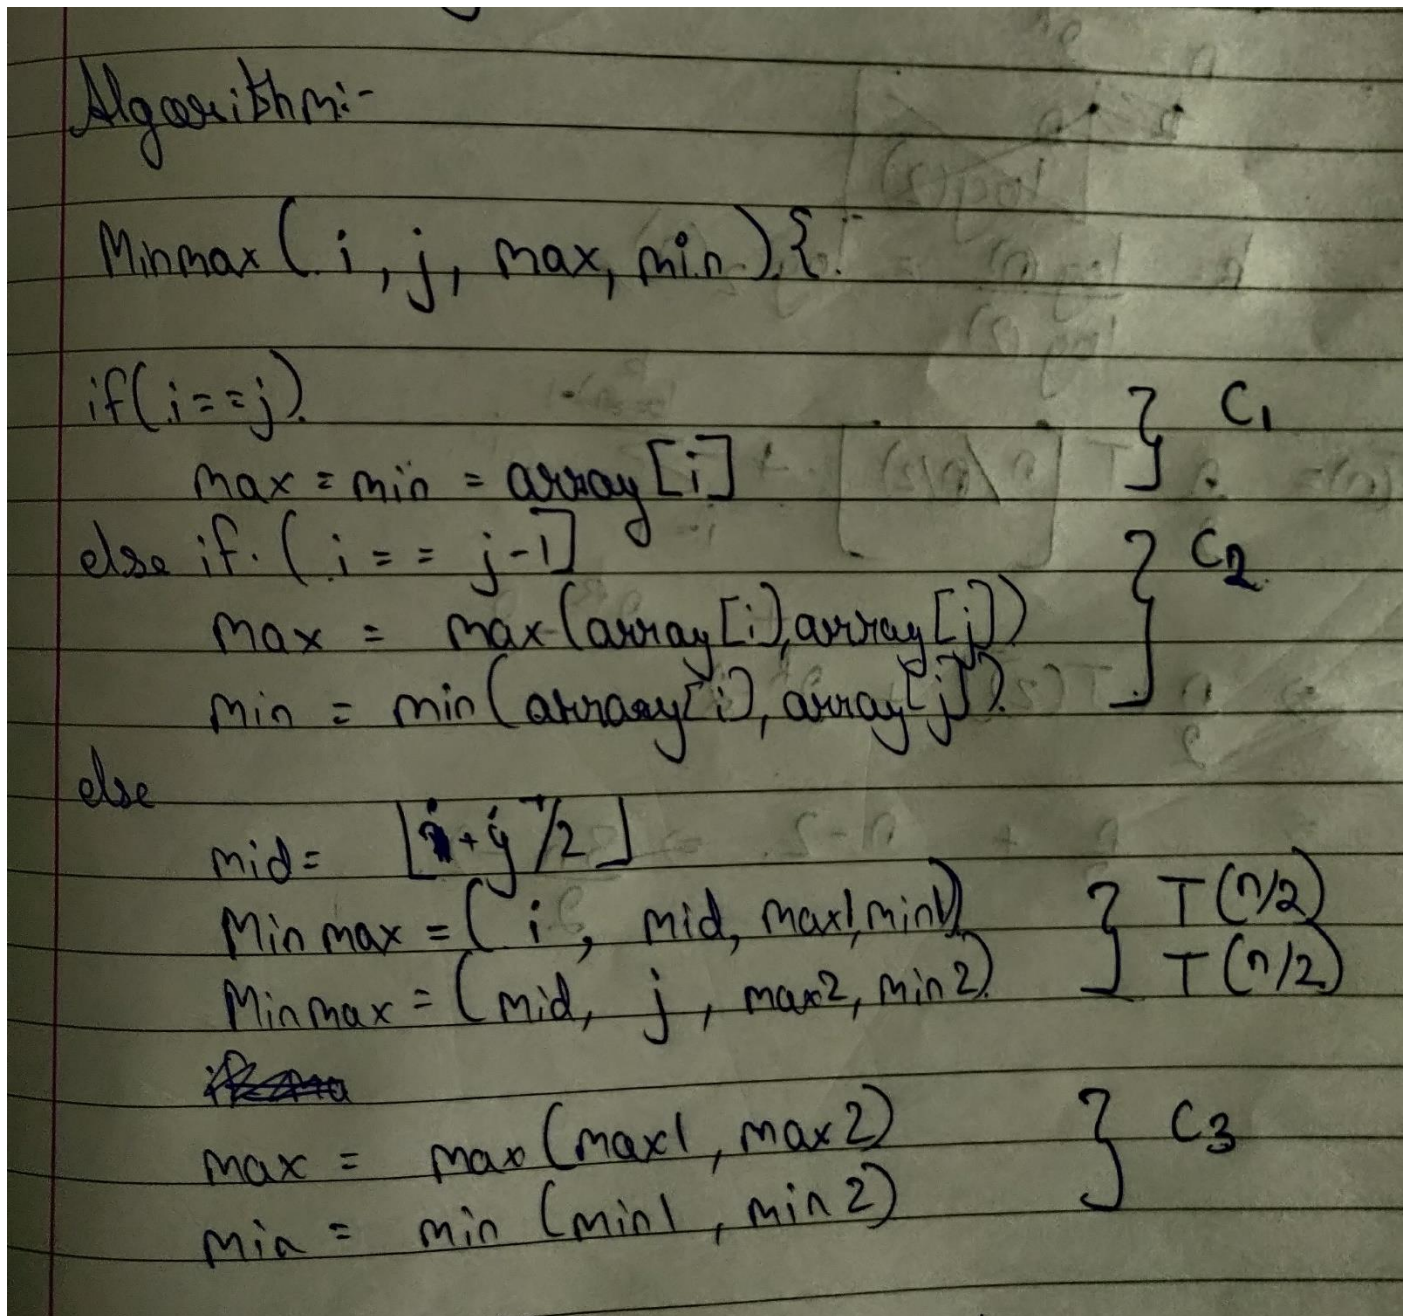 Algorithm:-
Minmax ( i, j, max, min ) {
if(i==j)
max = min = array[i]
} C1
else if ( i == j-1]
max = max(array[i], array[j])
} C2
min = min(array[i], array[j])
else
mid = ⌊i+j/2⌋
Minmax = ( i , mid, max1, min1)
} T(n/2)
Minmax = (mid, j , max2, min2)
T(n/2)
max = max (max1 , max2)
} C3
min = min (min1 , min2)